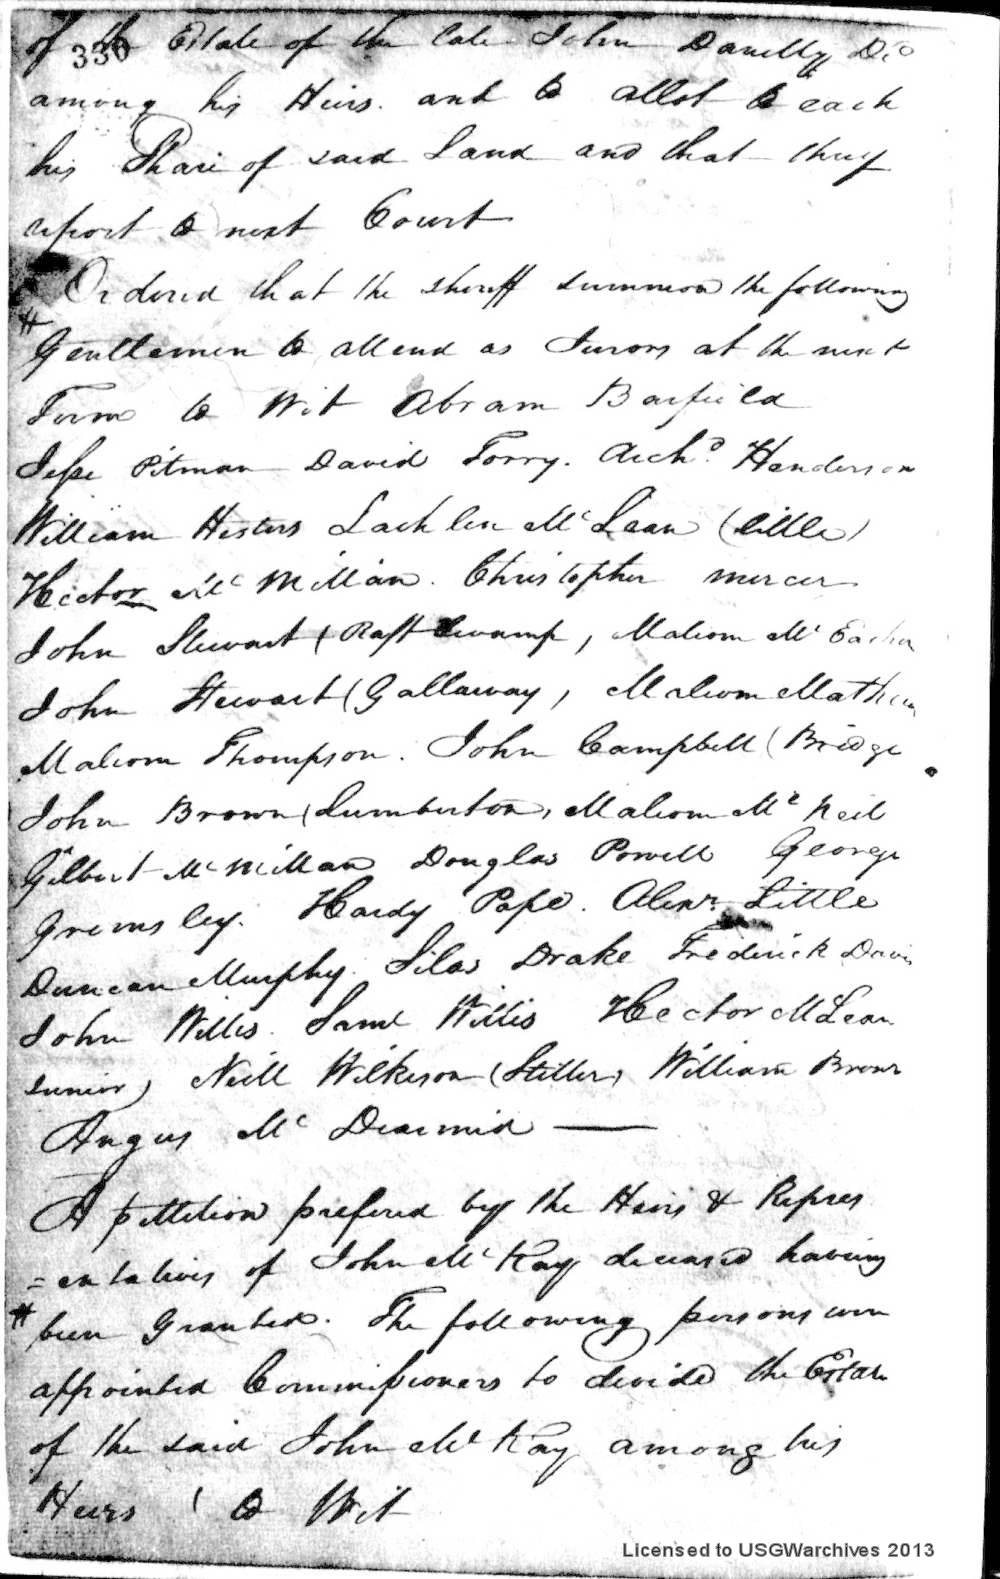 330
of the Estate of the late John Danelly Dec
among his Heirs. and to allot to each
his Share of said Land and that they
report to next Court
Ordered that the sheriff summon the following
# Gentlemen to attend as Jurors at the next
Term to Wit Abram Barfield
Jesse Pitman David Torry. Archd. Henderson
William Hesters Lachlin Mc Lean (little)
Hector Mc Millan. Christopher mercer
John Stewart (Raft Swamp, Malcom Mc Eachn
John Stewart (Gallaway, Malcom Mathew
Malcom Thompson. John Campbell (Bridge
John Brown (Lumberton, Malcom Mc Neil
Gilbert Mc Millan Douglas Powell George
Gremsley. Hardy Pope. Alexr. Little
Duncan Murphy. Silas Drake Frederick Davis
John Willis. Saml Willis Hector McLean
Junior) Neill Wilkeson (Stiller) William Brown
Angus Mc Dearmid —
A petteition prefered by the Heirs & Repres
=entatives of John Mc Kay deceased having
# been Granted. The following persons were
appointed Commissioners to divide the Estate
of the said John Mc Kay among his
Heirs to Wit
Licensed to USGWarchives 2013